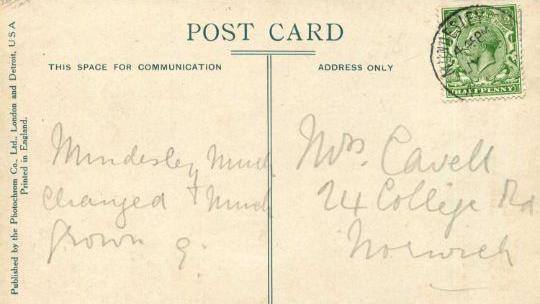 POST CARD
THIS SPACE FOR COMMUNICATION
ADDRESS ONLY
HALFPENNY
Published by the Photochrom Co., Ltd., London and Detroit, U S A
Printed in England.
Mundesley Much
Changed & Much
grown
Mrs. Cavell
24 College Rd
Norwich